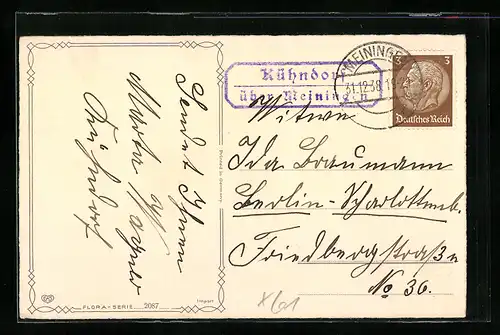 Sendet Ihnen
Martha Wagner
Kühndorf
Printed in Germany
FLORA-SERIE 2087
Kühndorf
über Meiningen
MEININGEN
31.12.38.19
3 3
Deutsches Reich
Witwe
Ida Braumann
Berlin-Scharlottenb.
Friedbergstraße
No 36.
x601